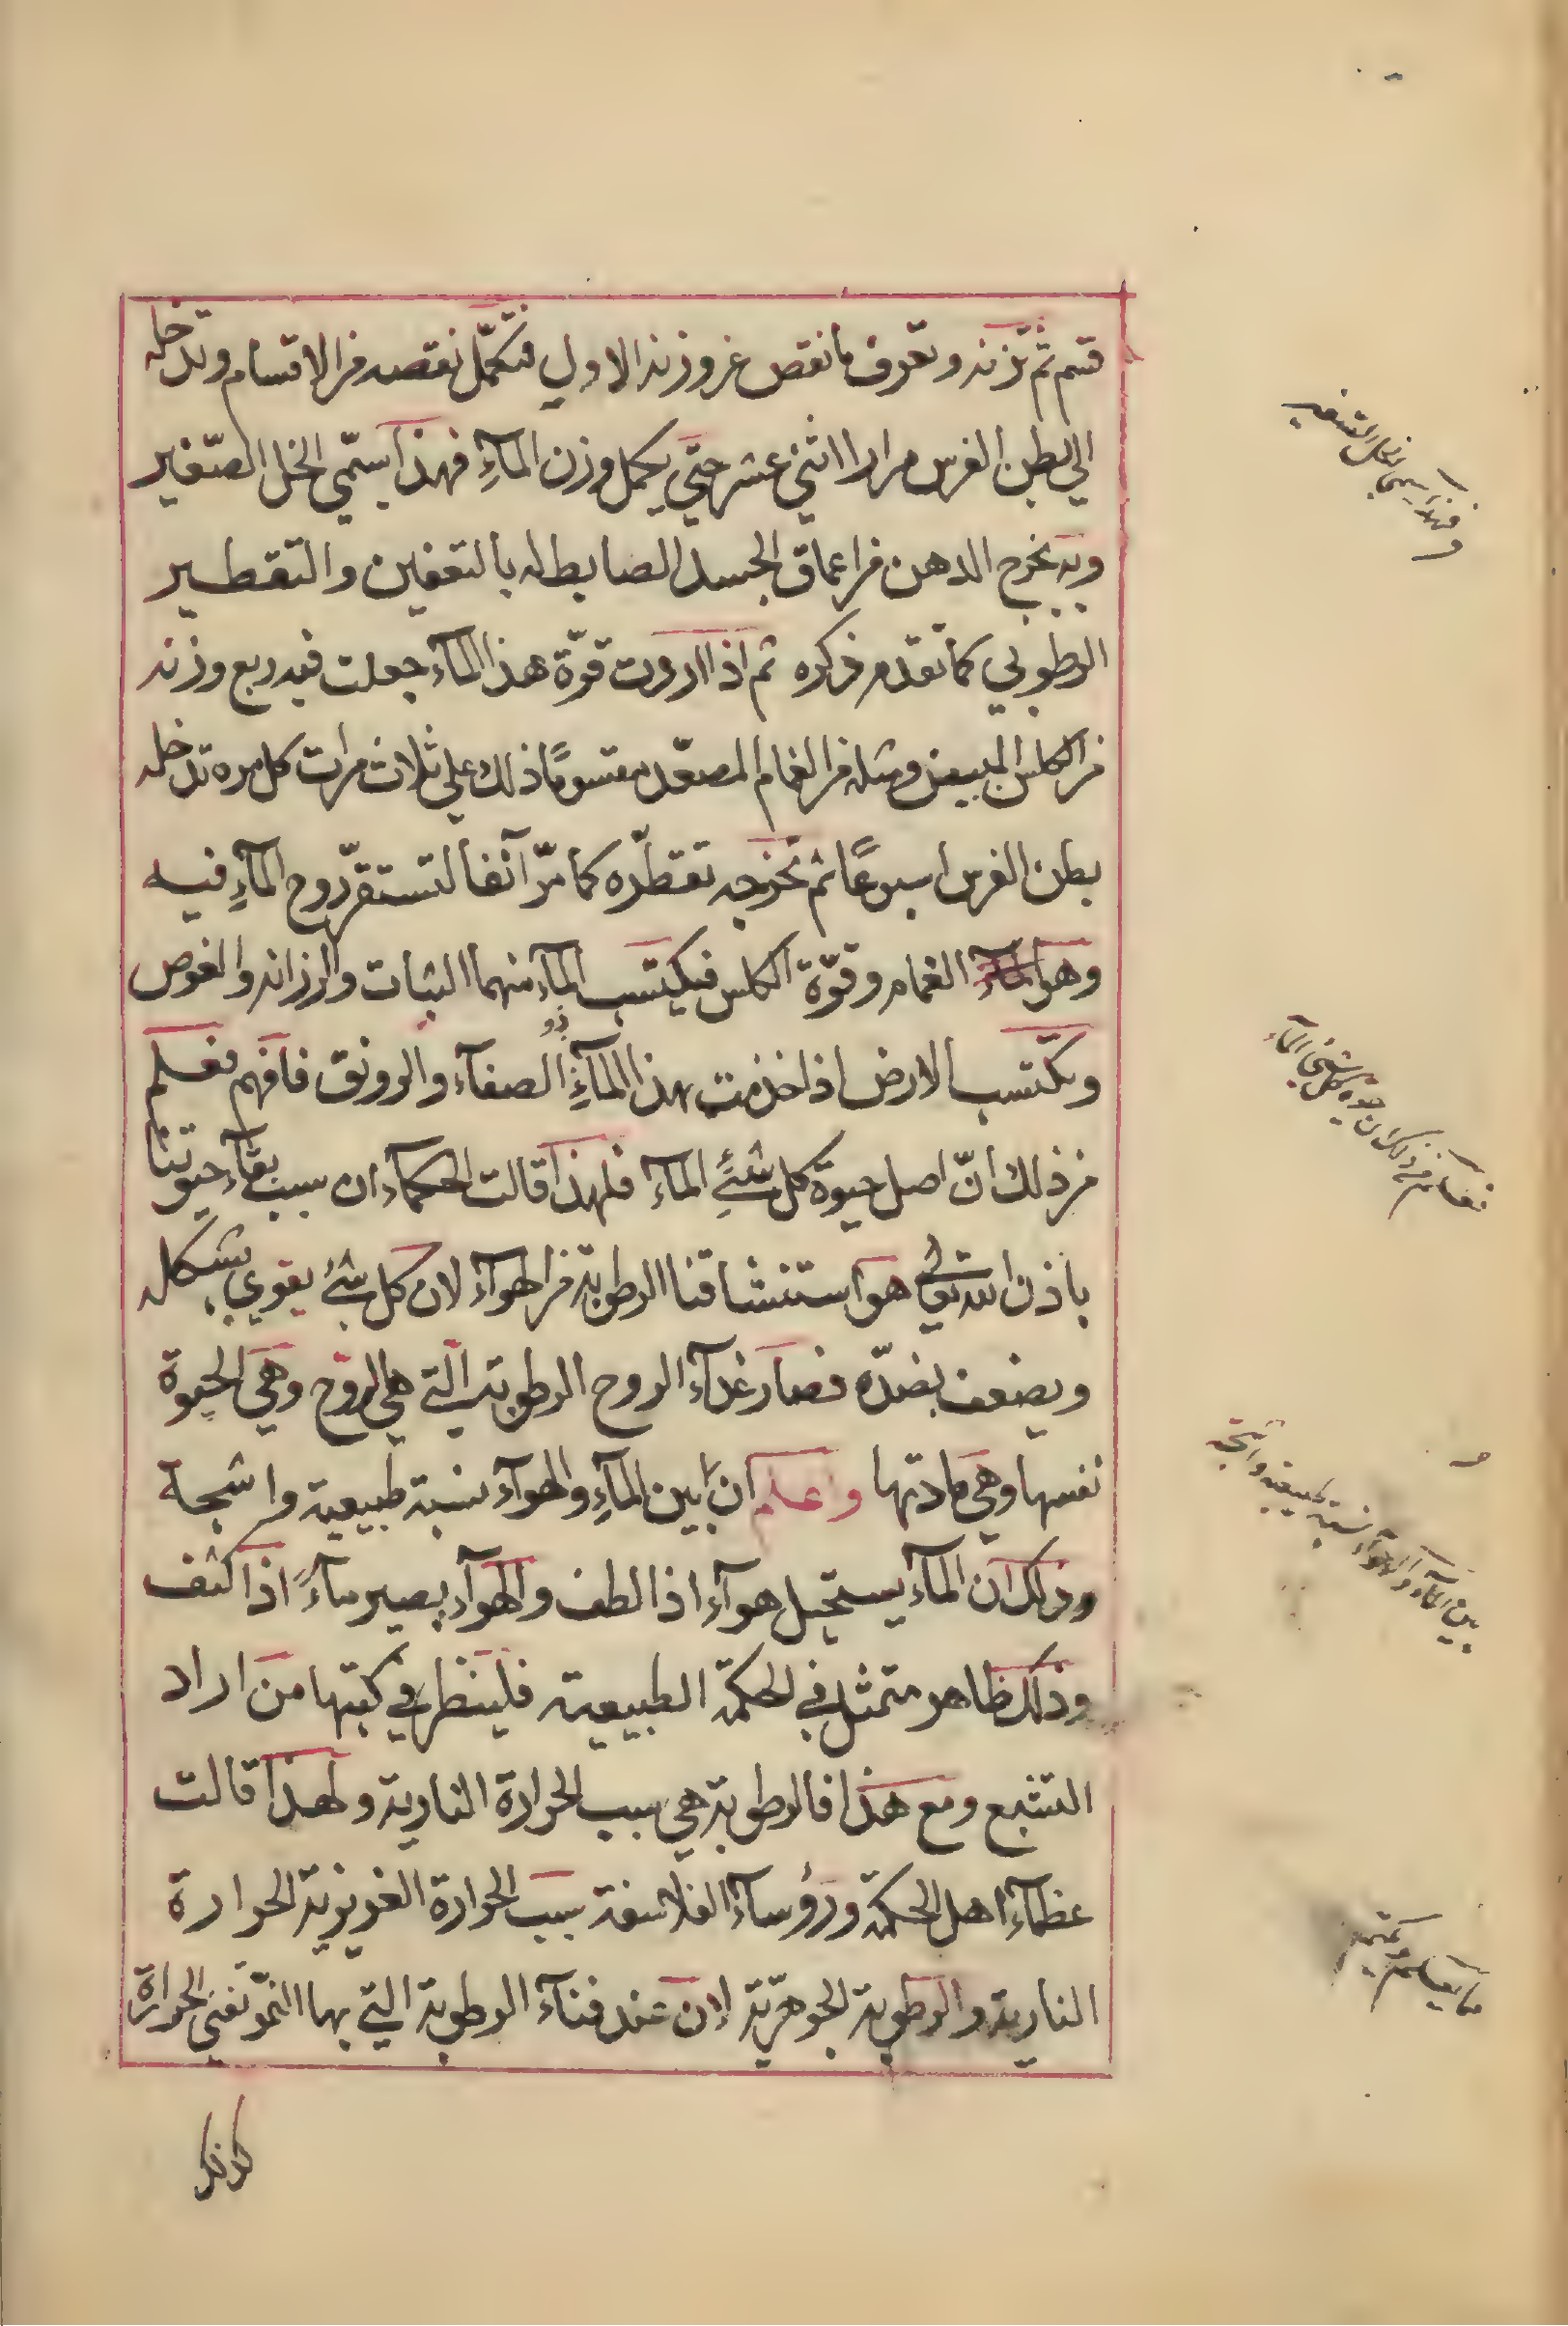 قسم ثم تزنه وتعرف ما نقص عن وزنه الاول فتكمّل نقصه من الاقسام وتدخله
الي بطن الفرس مرارا اثني عشر حتّي يكمل وزن المآءِ فهذا يسمّي الخل الصّغير
وبه يخرج الدهن من اعماق الجسد الضابط له بالتعفين والتقطير
الرطوبي كما تقدم ذكره ثم اذا اردت قوّة هذا المآء جعلت فيه ربع وزنه
من الكلس المبيض ومثله من الغمام المصعّد مقسومًا ذلك علي ثلاث مرات كل مره تدخله
بطن الفرس اسبوعًا ثم تخرجه تقطّره كما مرّ آنفا لتستقرّ روح المآءِ فيه
وهو الغمام وقوّة الكلس فيكتسب المآء منهما الثبات والرزانه والغوص
ويكتسب الارض اذا خذمت بهذا المآءِ ذو الصفآء والرونق فافهم فعلم
من ذلك انّ اصل حيوة كل شئٍ المآء فلهذا قالت الحكمآء ان سبب بقآء حيوتنا
باذن الله تعالي هو استنشاقنا الرطوبة من الهوآء لان كل شئ يقوي بشكله
ويضعف بضدّه فصار غدآء الروح الرطوبة التي هي الروح وهي الحيوة
نفسها وهي مادتها واعلم انّ بين المآءِ والهوآء نسبة طبيعية واشجة
وذلك ان المآء يستحيل هوآء اذا لطف والهوآء يصير مآءً اذا كثف
وذلك ظاهر متمثل في الحكمة الطبيعية فلينظر في كتبها من اراد
التتبع ومع هذا فالرطوبة هي سبب الحرارة النارية ولهذا قالت
عظمآء اهل الحكمة ورؤسآء الفلاسفة سبب الحرارة الغريزية الحرارة
النارية والرطوبة الجوهريّة لان عند فنآء الرطوبة التي بها النموّ تفني الحرارة
وفهذا يسمي الخل الصغير
فعلم من ذلك ان حيوة كل شئ المآء
بين المآء والهوآء نسبة طبيعية واشجة